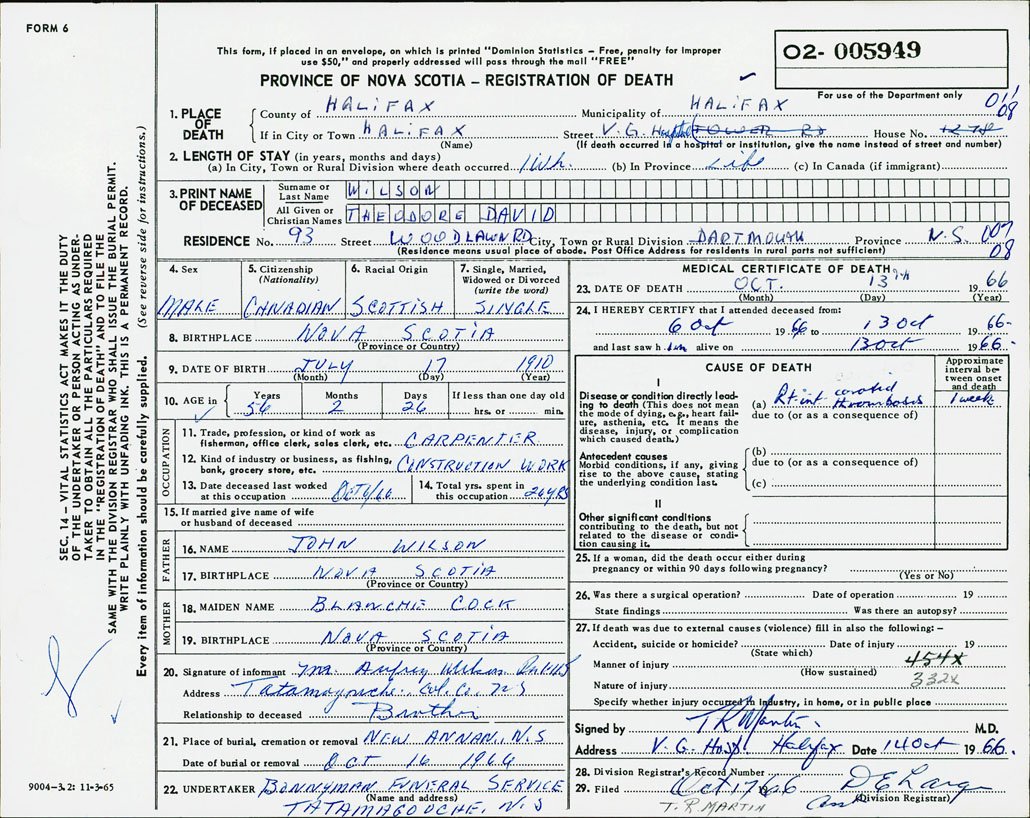 FORM 6
This form, if placed in an envelope, on which is printed "Dominion Statistics – Free, penalty for improper
use $50," and properly addressed will pass through the mail "FREE"
O2- 005949
PROVINCE OF NOVA SCOTIA – REGISTRATION OF DEATH
For use of the Department only
1. PLACE OF DEATH
County of HALIFAX Municipality of HALIFAX 08
If in City or Town HALIFAX Street V. G. TOWER RD House No.
(Name) (If death occurred in a hospital or institution, give the name instead of street and number)
2. LENGTH OF STAY (in years, months and days)
(a) In City, Town or Rural Division where death occurred 1 Wk. (b) In Province Life (c) In Canada (if immigrant)
3. PRINT NAME OF DECEASED
Surname or Last Name WILSON
All Given or Christian Names THEODORE DAVID
RESIDENCE No. 93 Street WOODLAWN RD City, Town or Rural Division DARTMOUTH Province N.S. 007
(Residence means usual place of abode. Post Office Address for residents in rural parts not sufficient) 08
4. Sex MALE
5. Citizenship (Nationality) CANADIAN
6. Racial Origin SCOTTISH
7. Single, Married, Widowed or Divorced (write the word) SINGLE
8. BIRTHPLACE NOVA SCOTIA
(Province or Country)
9. DATE OF BIRTH JULY 17 1910
(Month) (Day) (Year)
10. AGE in Years 56 Months 2 Days 26 If less than one day old hrs. or min.
OCCUPATION
11. Trade, profession, or kind of work as
fisherman, office clerk, sales clerk, etc. CARPENTER
12. Kind of industry or business, as fishing,
bank, grocery store, etc. CONSTRUCTION WORK
13. Date deceased last worked
at this occupation Oct 6/66
14. Total yrs. spent in
this occupation 26 YRS
15. If married give name of wife
or husband of deceased
FATHER
16. NAME JOHN WILSON
17. BIRTHPLACE NOVA SCOTIA
(Province or Country)
MOTHER
18. MAIDEN NAME BLANCHE COCK
19. BIRTHPLACE NOVA SCOTIA
(Province or Country)
20. Signature of informant Mr. Aubrey Wilson
Address Tatamagouche, Col. Co. NS
Relationship to deceased Brother
21. Place of burial, cremation or removal NEW ANNAN, N.S
Date of burial or removal OCT 16 1966
22. UNDERTAKER BONNYMAN FUNERAL SERVICE
(Name and address)
TATAMAGOUCHE, N.S
MEDICAL CERTIFICATE OF DEATH
23. DATE OF DEATH OCT. 13th 1966
(Month) (Day) (Year)
24. I HEREBY CERTIFY that I attended deceased from:
6 Oct 1966 to 13 Oct 1966
and last saw him alive on 13 Oct 1966
CAUSE OF DEATH
Approximate interval between onset and death
I
Disease or condition directly leading to death (This does not mean the mode of dying, e.g., heart failure, asthenia, etc. It means the disease, injury, or complication which caused death.)
(a) Rt int carotid thrombosis 1 week
due to (or as a consequence of)
Antecedent causes
Morbid conditions, if any, giving rise to the above cause, stating the underlying condition last.
(b)
due to (or as a consequence of)
(c)
II
Other significant conditions
contributing to the death, but not related to the disease or condition causing it.
25. If a woman, did the death occur either during
pregnancy or within 90 days following pregnancy?
(Yes or No)
26. Was there a surgical operation? Date of operation 19
State findings Was there an autopsy?
27. If death was due to external causes (violence) fill in also the following: –
Accident, suicide or homicide? Date of injury 19
(State which)
Manner of injury 454X
(How sustained)
Nature of injury 332X
Specify whether injury occurred in industry, in home, or in public place
Signed by T R Martin M.D.
Address V. G. Hosp. Halifax Date 14 Oct 1966.
28. Division Registrar's Record Number
29. Filed Oct 17 66
(Division Registrar)
T. R. MARTIN
SEC. 14 – VITAL STATISTICS ACT MAKES IT THE DUTY
OF THE UNDERTAKER OR PERSON ACTING AS UNDERTAKER
TO OBTAIN ALL THE PARTICULARS REQUIRED
IN THE "REGISTRATION OF DEATH" AND TO FILE THE
SAME WITH THE DIVISION REGISTRAR WHO SHALL ISSUE THE BURIAL PERMIT.
WRITE PLAINLY WITH UNFADING INK. THIS IS A PERMANENT RECORD.
Every item of information should be carefully supplied. (See reverse side for instructions.)
9004–3.2: 11-3-65